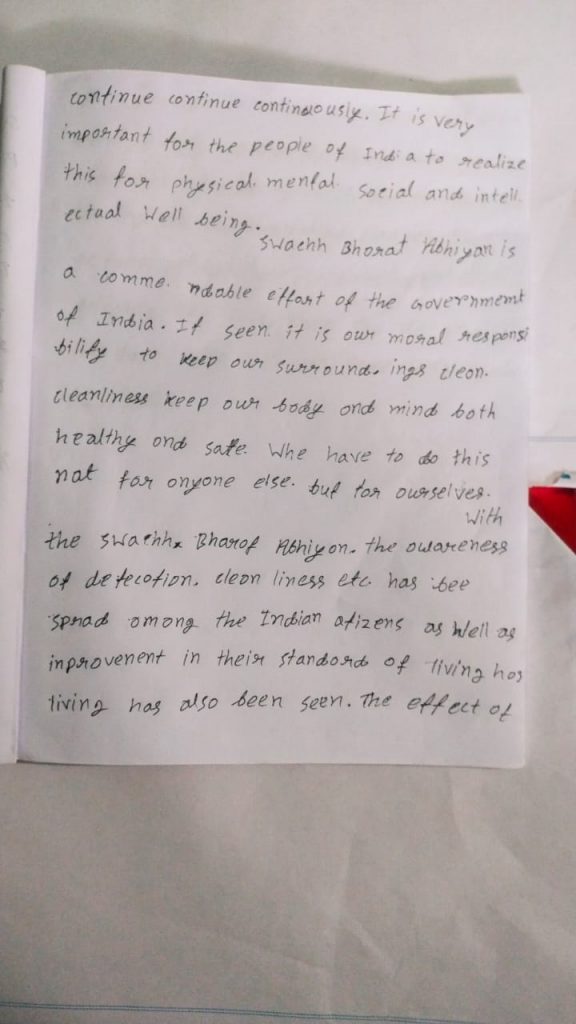 continue continue continuously. It is very
important for the people of India to realize
this for physical. mental. social and intell.
ectual Well being.
Swachh Bharat Abhiyan is
a comme. ndable effort of the Government
of India. If seen. it is our moral responsi
bility to keep our surround. ings clean.
cleanliness keep our body and mind both
healthy and safe. Whe have to do this
not for anyone else. but for ourselves.
With
the Swachhx Bharat Abhiyan. the awareness
of defecation. clean liness etc. has bee
spread among the Indian atizens as well as
inprovenent in their standard of living has
living has also been seen. The effect of